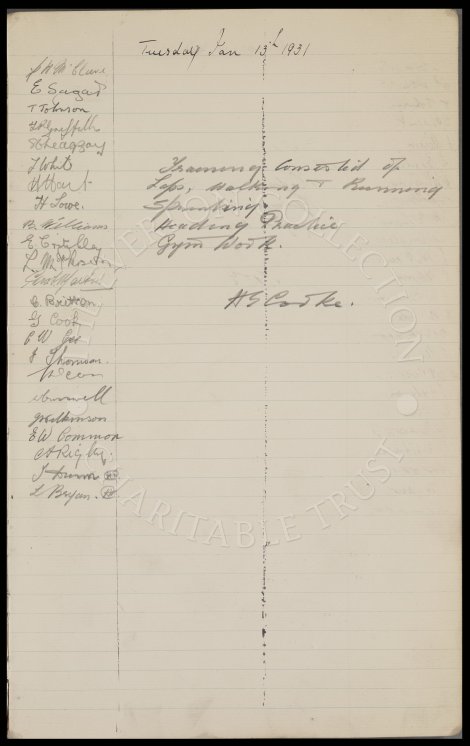 Tuesday Jan 13th 1931
J W McClure
E Sagar
T Johnson
T P Griffiths
J White
H Hart
H Lowe.
B. Williams
E Critchley
C. Britton
G Cook
C W Gee
J Thomson.
Dean
J Wilkinson
E W Common
C A Rigby.
J Dunn
L Bryan. H
Training Consisted of
Laps, Walking & Running
Sprinting.
Heading Practice
Gym Work.
H E Cooke.
THE EVERTON COLLECTION
CHARITABLE TRUST